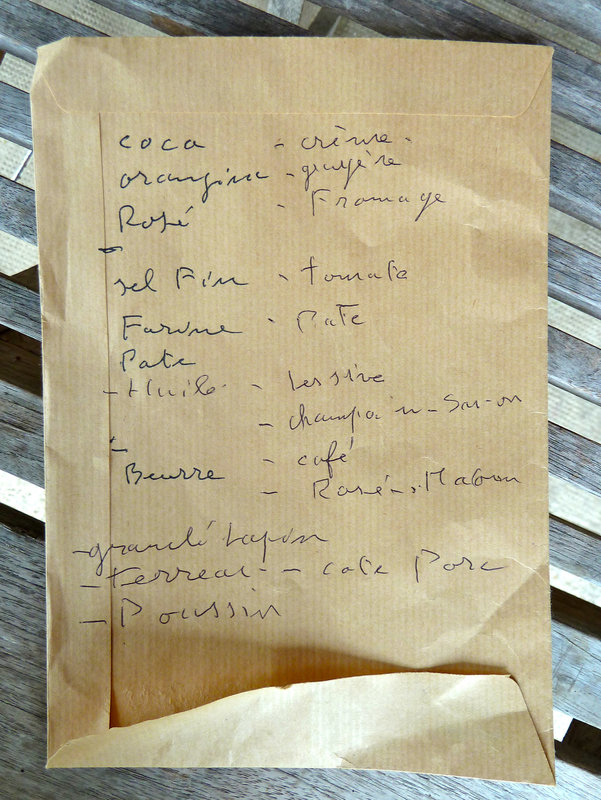 coca - crème -
orangina - gruyère
Rosé - Fromage
sel Fin - tomate
Farine - Pate
Pate
- Huile - lessive
- champoin - Sav-on
- café
Beurre
- Rosé -
- granulé Lapin
- terreau - cote Porc
- Poussin